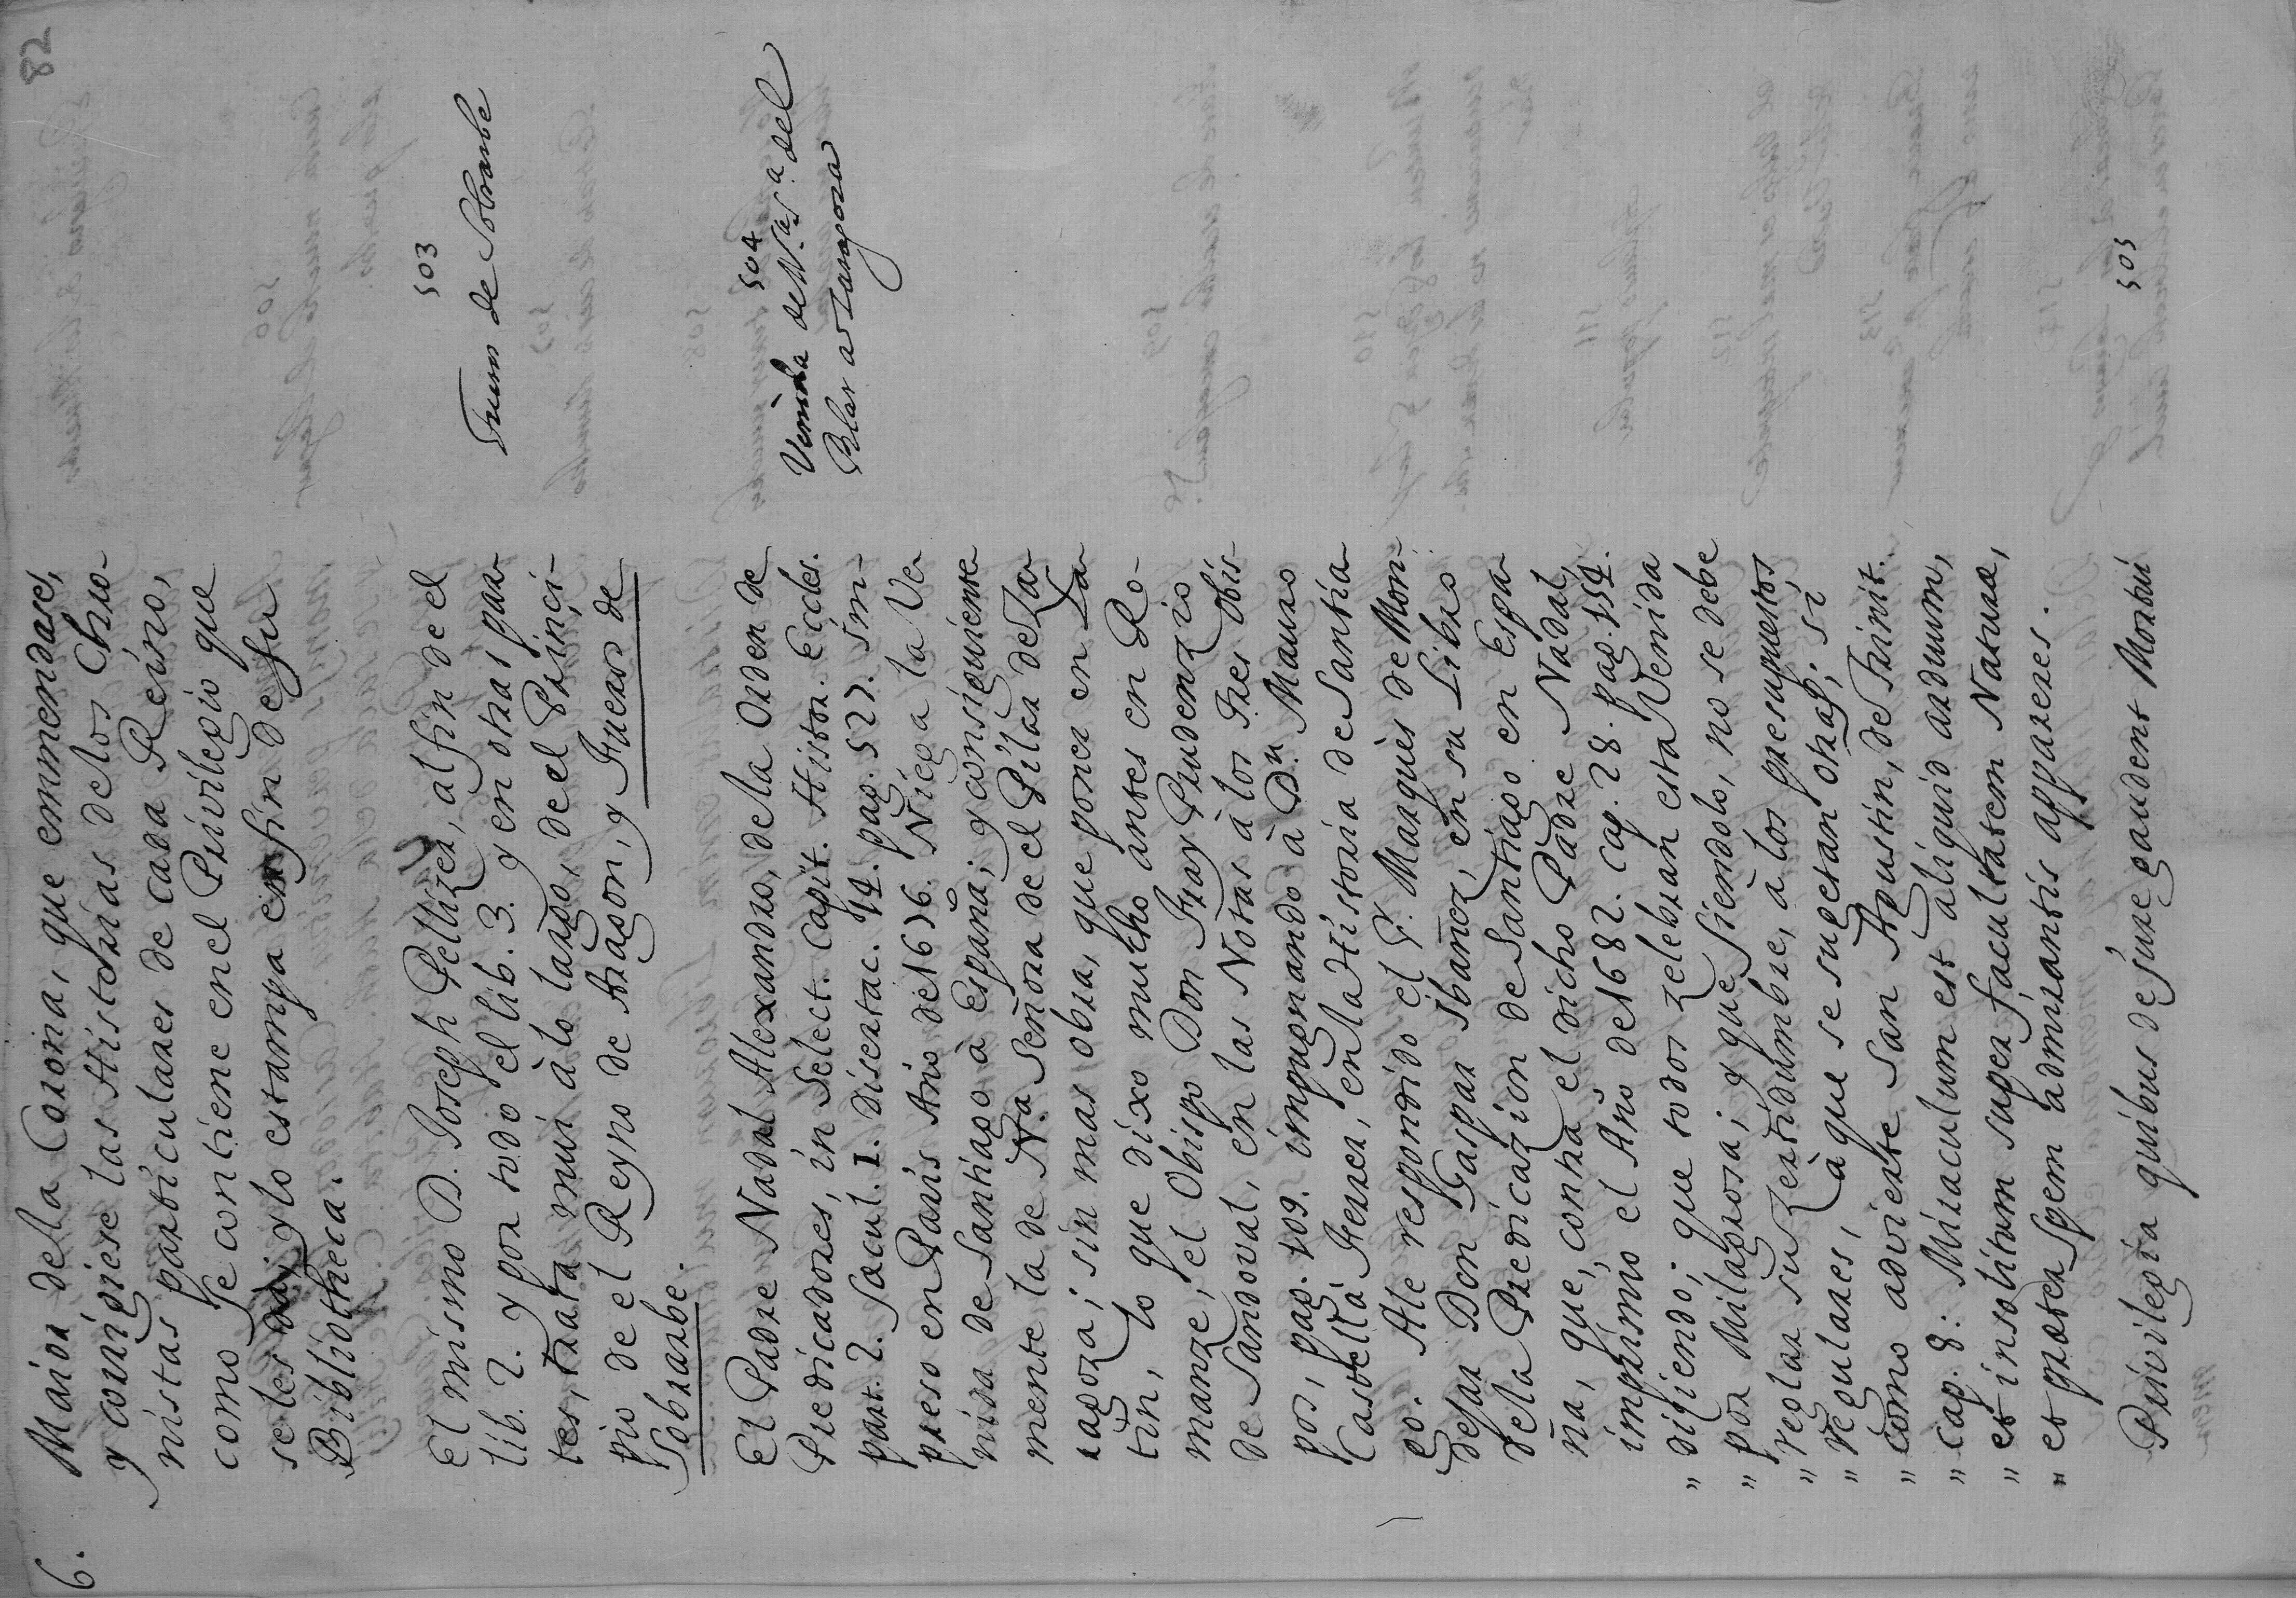 82
6.
Maior dela Corona, que emmendase,
y corrigiese las Historias delos Chro-
nistas particulares de cada Reino,
como se contiene enel Privilegio que
se les dà; y lo estampa en fin desu
Bibliotheca.
503
Fuero de Sobrarbe
El mismo D. Joseph Pellizer, al fin de el
lib. 2. y por todo el lib. 3. y en otras par-
tes, trata mui à lo largo, de el Princi-
pio de el Reyno de Aragon, y Fueros de
Sobrarbe.
504
Venida de N.a S.a del
Pilar a Zaragoza
El Padre Nadal Alexandro, dela Orden de
Predicadores, in Select. Capit. Histor. Eccles.
part. 2. Sæcul. I. Disertac. 14. pag. 527. im-
preso en Paris Año de 1676. Niega la Ve-
nida de Santiago à España; y consiguiente
mente la de N.a Señora de el Pilar de Za-
ragoza; sin mas obra, que poner en La-
tin, lo que dixo mucho antes en Ro-
manze, el Obispo Don Fray Prudenzio
de Sandoval, en las Notas à los Tres Obis-
pos, pag. 109. impugnando à D.n Mauro
Castellá Ferrer, en la Historia de Santia-
go. Ale respondido el S.r Marquès de Mon-
dejar Don Gaspar Ibañez, en su Libro
dela Predicazion de Santiago en Espa-
ña, que, contra el dicho Padre Nadal,
imprimio el Año de 1682. cap. 28. pag. 154.
" diziendo; que todos zelebran esta Venida
" por Milagrosa; y que siendolo, no se debe
" reglar su zertidumbre, a los presupuestos
" regulares, à que se sugetan otras; si
" como advierte San Agustin, de Trinit.
" cap. 8: Miraculum est aliquid arduum,
" et insolitum super facultatem Naturæ,
" et præter Spem admirantis apparens.
505
Privilegia quibus de jure gaudent Mortui